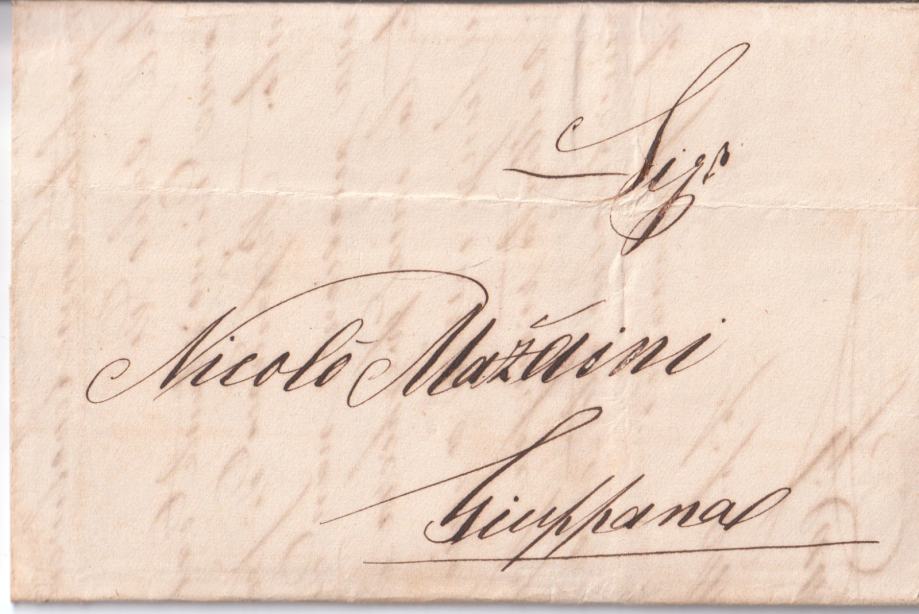 Sigr
Nicolò Mažaini
Giuppana